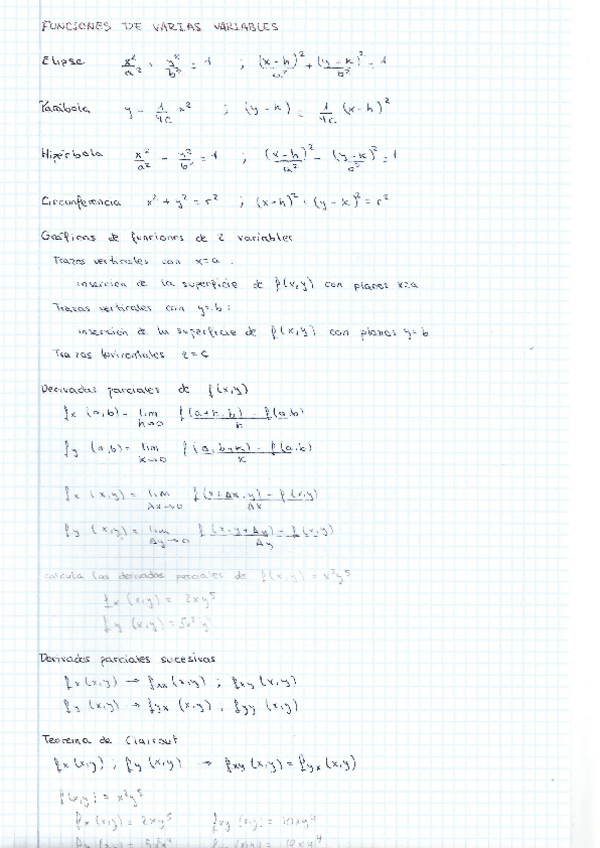 FUNCIONES DE VARIAS VARIABLES
Elipse x²/a² + y²/b² = 1 ; (x-h)²/a² + (y-k)²/b² = 1
Parábola y = 1/4c x² ; (y-k) = 1/4c (x-h)²
Hipérbola x²/a² - y²/b² = 1 ; (x-h)²/a² - (y-k)²/b² = 1
Circunferencia x² + y² = r² ; (x-h)² + (y-k)² = r²
Gráficas de funciones de 2 variables
Trazas verticales con x=a :
inserción de la superficie de f(x,y) con planes x=a
Trazas verticales con y=b :
inserción de la superficie de f(x,y) con planos y=b
Trazas horizontales z=c
Derivadas parciales de f(x,y)
fx (a,b) = lim h→0 f(a+h,b) - f(a,b) / h
fy (a,b) = lim k→0 f(a,b+k) - f(a,b) / k
fx (x,y) = lim Δx→0 f(x+Δx,y) - f(x,y) / Δx
fy (x,y) = lim Δy→0 f(x,y+Δy) - f(x,y) / Δy
calcula las derivadas parciales de f(x,y) = x²y⁵
fx (x,y) = 2xy⁵
fy (x,y) = 5x²y⁴
Derivadas parciales sucesivas
fx (x,y) → fxx (x,y) ; fxy (x,y)
fy (x,y) → fyx (x,y) ; fyy (x,y)
Teorema de Clairaut
fx (x,y) ; fy (x,y) → fxy (x,y) = fyx (x,y)
f(x,y) = x²y⁵
fx (x,y) = 2xy⁵ fxy (x,y) = 10xy⁴
fy (x,y) = 5x²y⁴ (x,y) = 10xy⁴